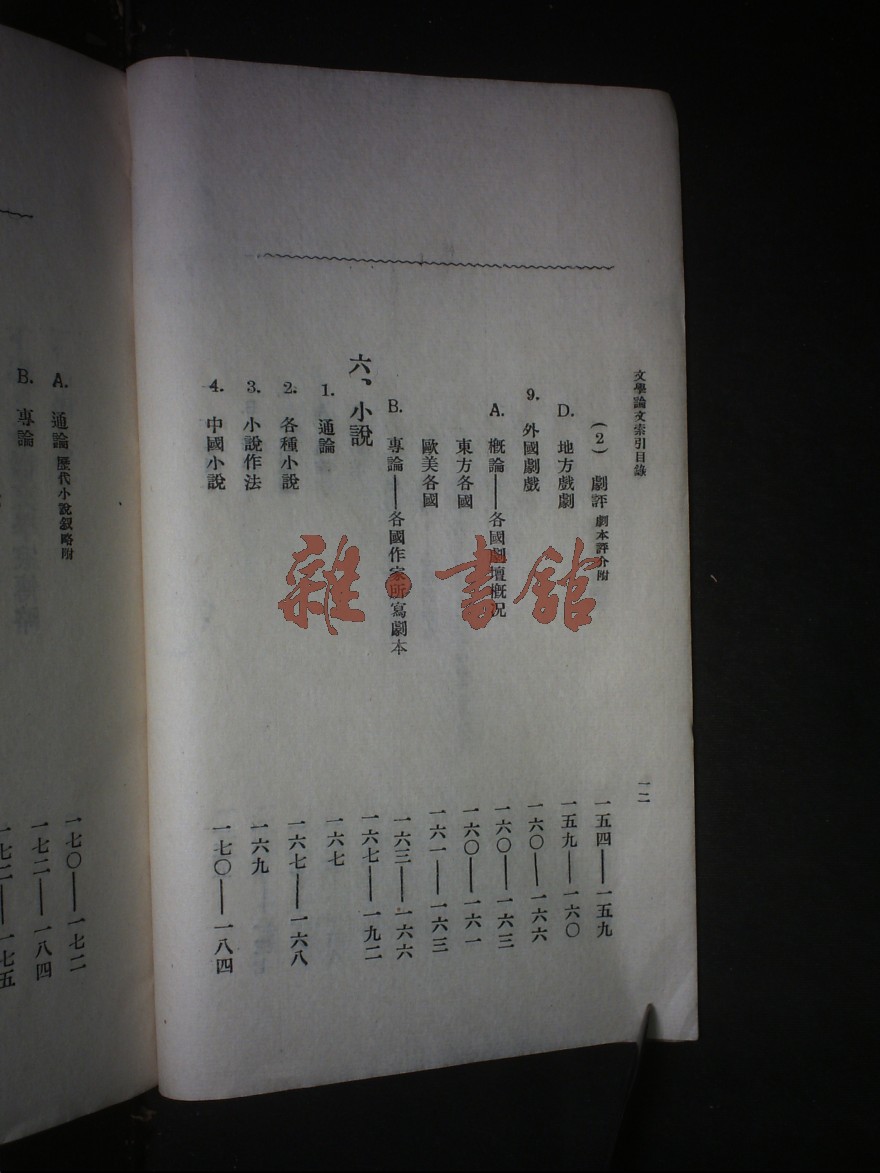 文學論文索引目錄
一二
(2) 劇評 劇本評介附 一五四——一五九
D. 地方戲劇 一五九——一六〇
9. 外國劇戲 一六〇——一六六
A. 概論——各國劇壇概況 一六〇——一六三
東方各國 一六〇——一六一
歐美各國 一六一——一六三
B. 專論——各國作家所寫劇本 一六三——一六六
六、小說 一六七——一九二
1. 通論 一六七
2. 各種小說 一六七——一六八
3. 小說作法 一六九
4. 中國小說 一七〇——一八四
A. 通論 歷代小說叙略附 一七〇——一七二
B. 專論 一七二——一八四
一七二——一七五
雜·書館